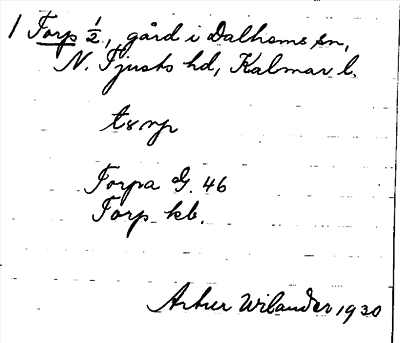 1 Torp 1/2, gård i Dalhems sn,
N. Tjusts hd, Kalmar l.
tɵrp
Torpa G. 46
Torp kb.
Artur Wilander 1930